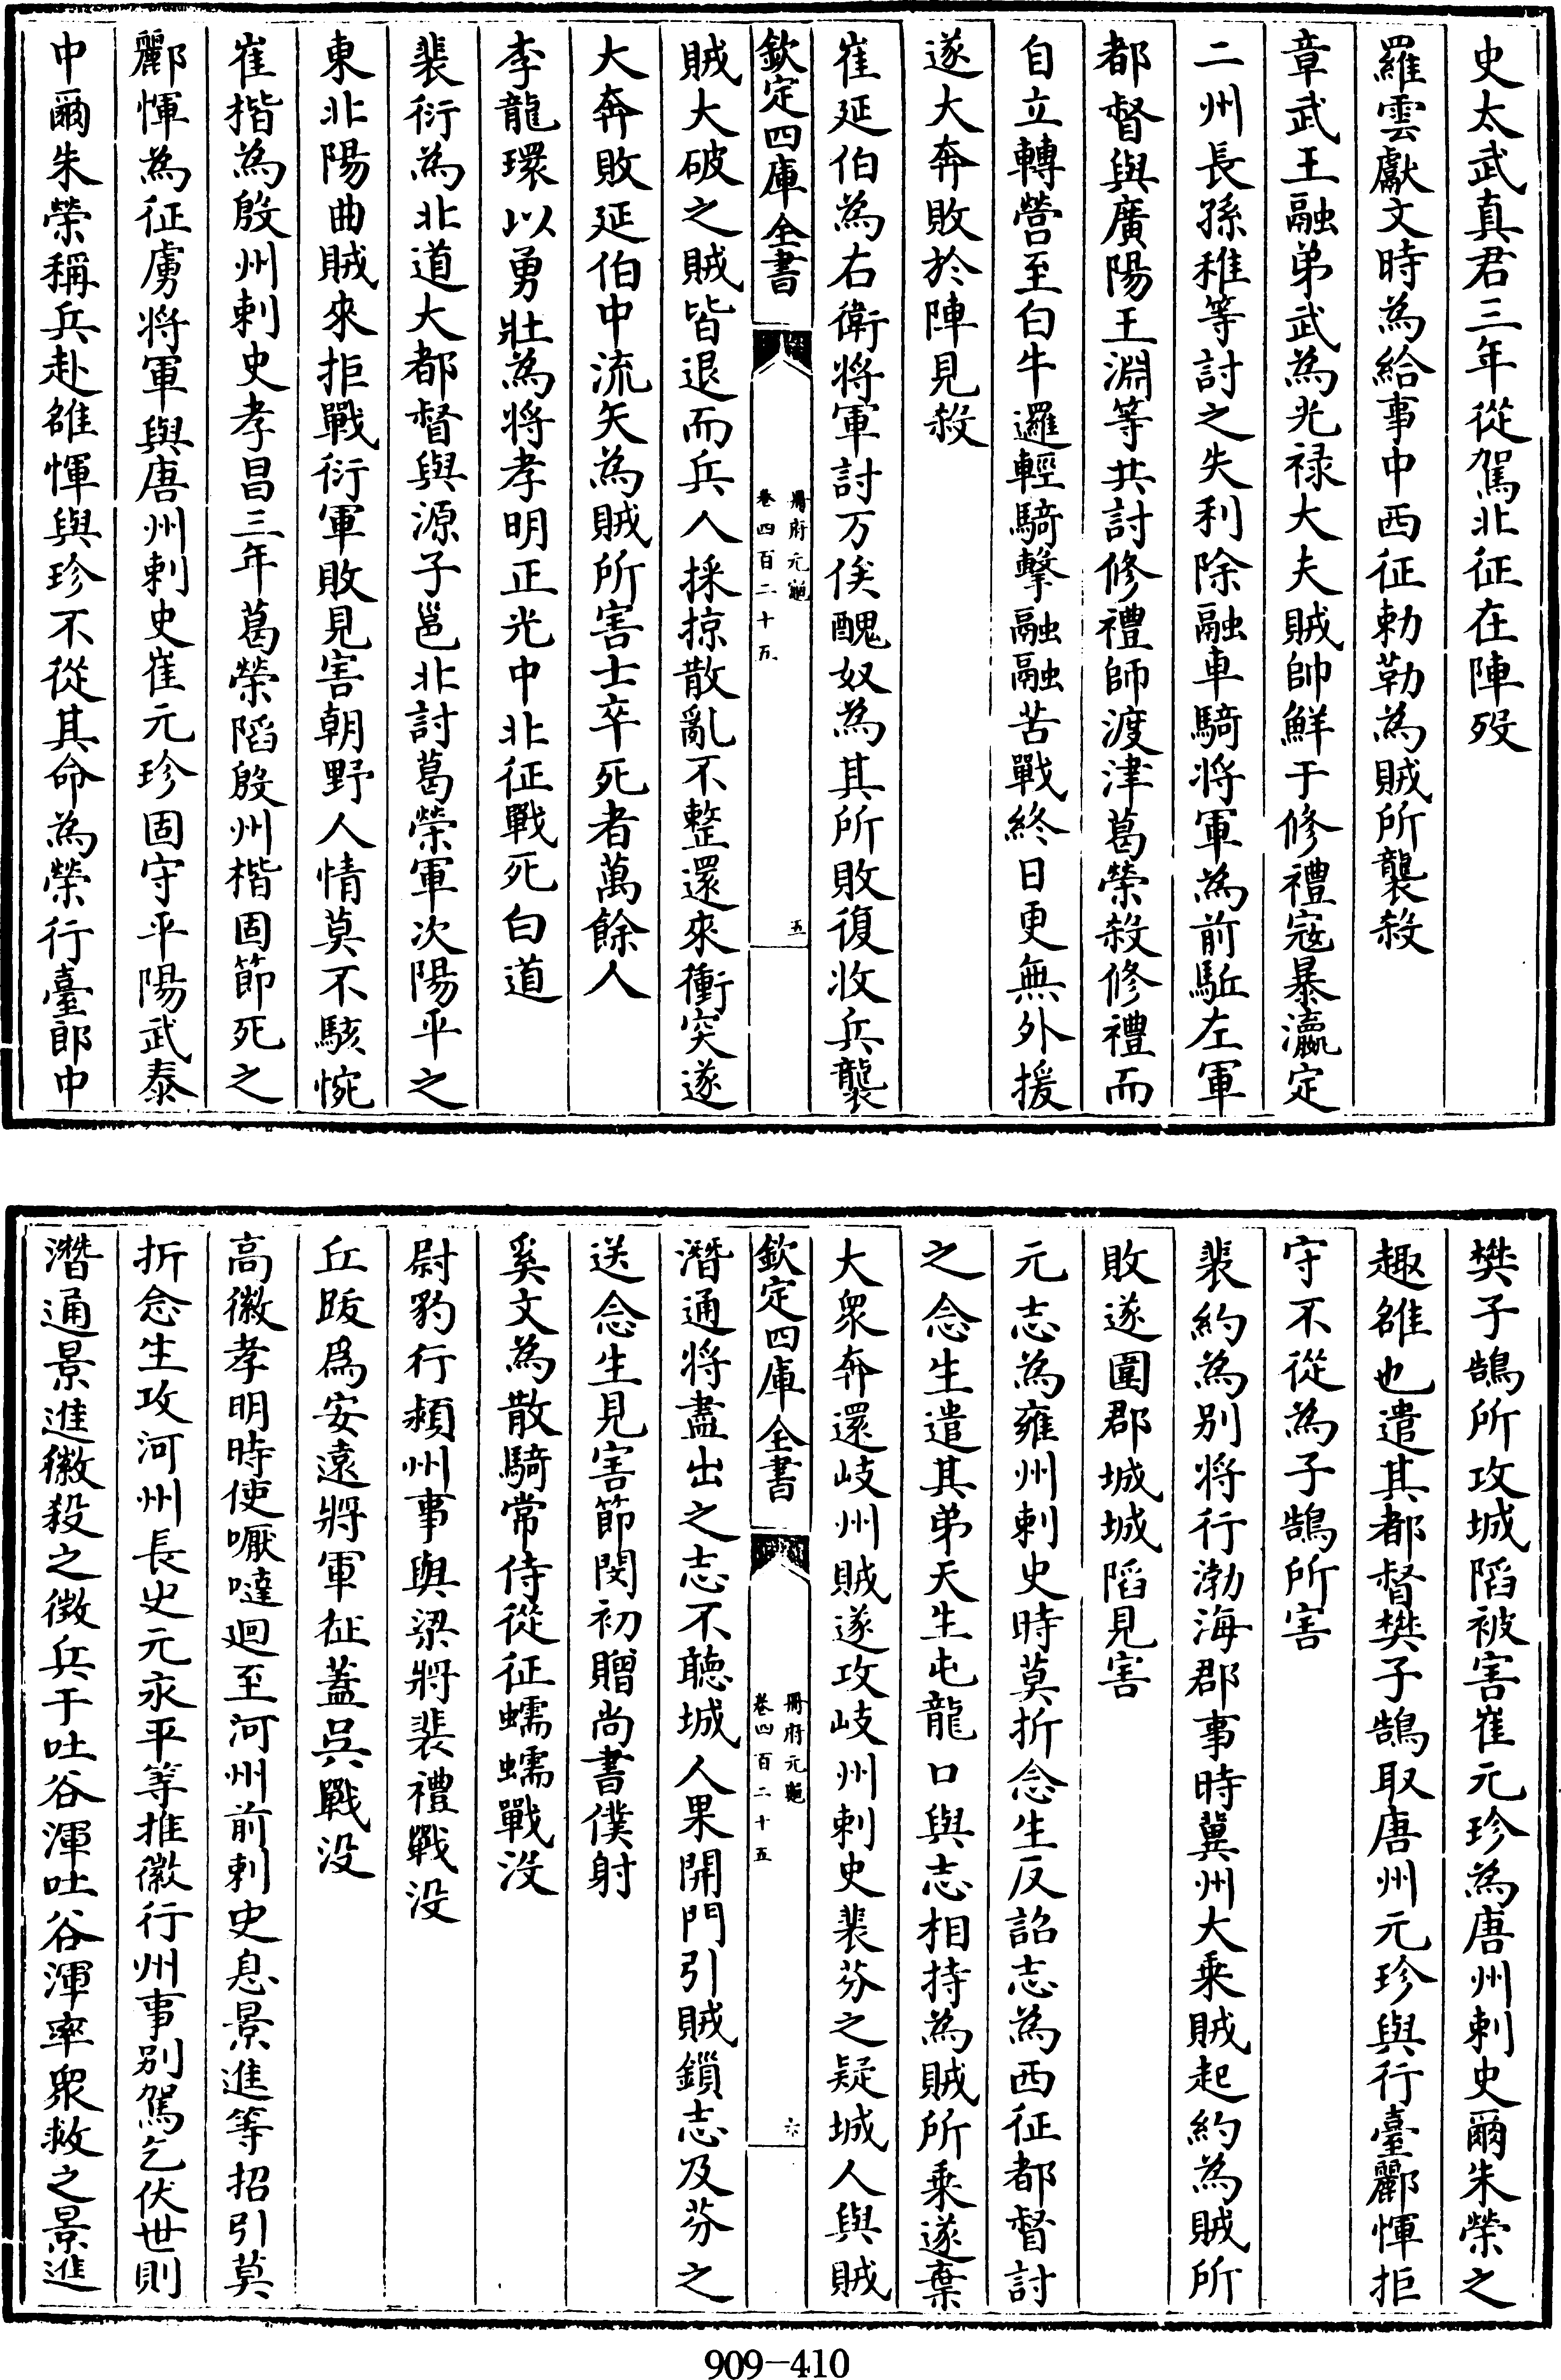 史太武真君三年從駕北征在陣歿
羅雲獻文時為給事中西征勅勒為賊所襲殺
章武王融弟武為光禄大夫賊帥鮮于修禮寇暴瀛定
二州長孫稚等討之失利除融車騎將軍為前駈左軍
都督與廣陽王淵等共討修禮師渡津葛榮殺修禮而
自立轉營至白牛邏輕騎擊融融苦戰終日更無外援
遂大奔敗於陣見殺
崔延伯為右衛將軍討万俟醜奴為其所敗復收兵襲
欽定四庫全書
冊府元龜
卷四百二十五
五
賊大破之賊皆退而兵人採掠散亂不整還來衝突遂
大奔敗延伯中流矢為賊所害士卒死者萬餘人
李龍環以勇壯為將孝明正光中北征戰死白道
裴衍為北道大都督與源子邕北討葛榮軍次陽平之
東北陽曲賊來拒戰衍軍敗見害朝野人情莫不駭惋
崔楷為殷州刺史孝昌三年葛榮陷殷州楷固節死之
酈惲為征虜將軍與唐州刺史崔元珍固守平陽武泰
中爾朱榮稱兵赴雒惲與珍不從其命為榮行臺郎中
樊子鵠所攻城陷被害崔元珍為唐州刺史爾朱榮之
趣雒也遣其都督樊子鵠取唐州元珍與行臺酈惲拒
守不從為子鵠所害
裴約為别將行渤海郡事時冀州大乗賊起約為賊所
敗遂圍郡城城陷見害
元志為雍州刺史時莫折念生反詔志為西征都督討
之念生遣其弟天生屯龍口與志相持為賊所乗遂棄
大衆奔還岐州賊遂攻岐州刺史裴芬之疑城人與賊
欽定四庫全書
冊府元龜
卷四百二十五
六
潛通將盡出之志不聽城人果開門引賊鎖志及芬之
送念生見害節閔初贈尚書僕射
奚文為散騎常侍從征蠕蠕戰没
尉豹行潁州事與梁將裴禮戰没
丘跋爲安遠將軍征蓋吳戰没
高徽孝明時使嚈噠迴至河州前刺史息景進等招引莫
折念生攻河州長史元永平等推徽行州事别駕乞伏世則
潛通景進徽殺之徵兵于吐谷渾吐谷渾率衆救之景進
909-410